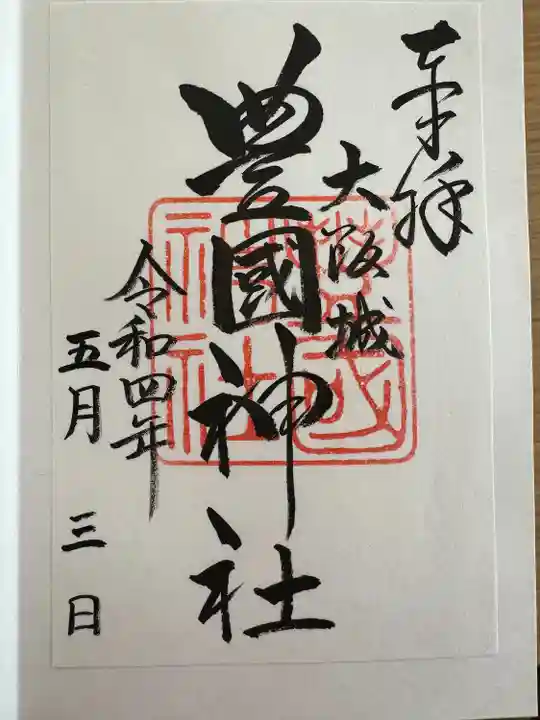 奉拝
大阪城
豊國神社
令和四年
五月 三日
豊國
神社